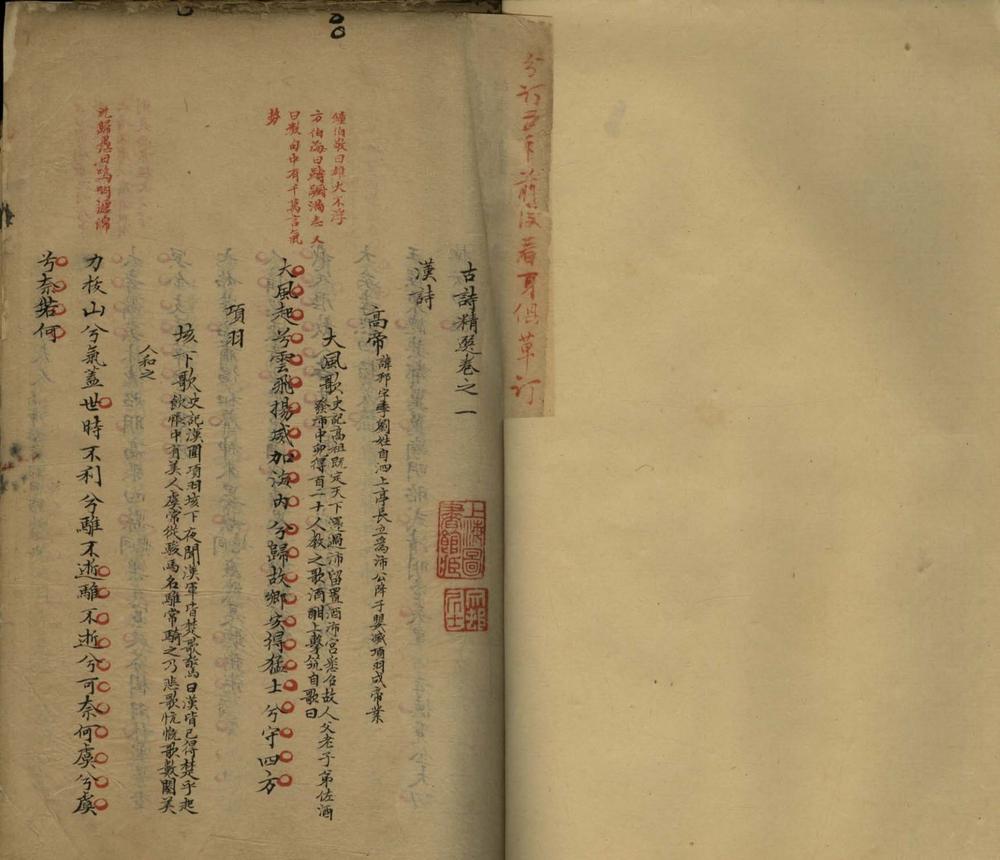 分訂五本前後着身俱草訂
古詩精選卷之一
上海圖書館藏
漢詩
高帝諱邦字季劉姓自泗上亭長立為沛公降子嬰滅項羽成帝業
大風歌史記高祖既定天下還過沛留置酒沛宮悉召故人父老子弟佐酒
發沛中兒得百二十人教之歌酒酣上擊筑自歌曰
鍾伯敬曰雄大不浮
方伯海曰躊躇滿志人
曰數句中有千萬言氣
勢
大風起兮雲飛揚威加海內兮歸故鄉安得猛士兮守四方
項羽
垓下歌史記漢圍項羽垓下夜聞漢軍皆楚歌驚曰漢皆已得楚乎起
飲帳中有美人虞常從駿馬名騅常騎之乃悲歌忼慨歌數闋美
人和之
沈歸愚曰嗚咽纏綿
力拔山兮氣蓋世時不利兮騅不逝騅不逝兮可奈何虞兮虞
兮奈若何